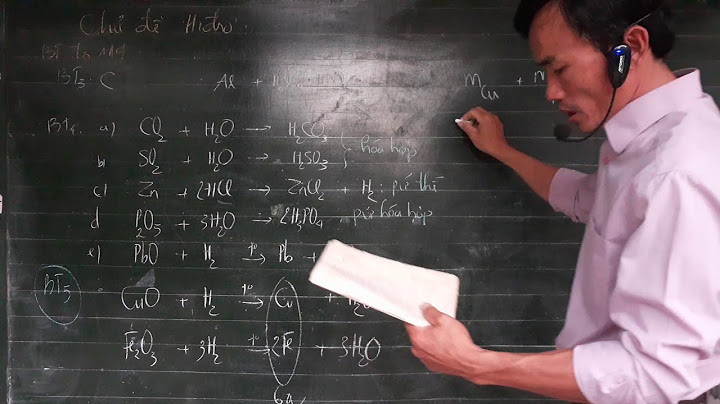 Chủ đề Hiđro.
BT
BT3. C Al +
m_Cu +
BT4. a) CO₂ + H₂O → H₂CO₃
b, SO₂ + H₂O → H₂SO₃ } hóa hợp
c) Zn + 2HCl → ZnCl₂ + H₂ : pứ thế
d P₂O₅ + 3H₂O → 2H₃PO₄ pứ hóa hợp
e) PbO + H₂ –t°→ Pb +
BT5 CuO + H₂ –t°→ Cu +
Fe₂O₃ + 3H₂ –t°→ 2Fe + 3H₂O